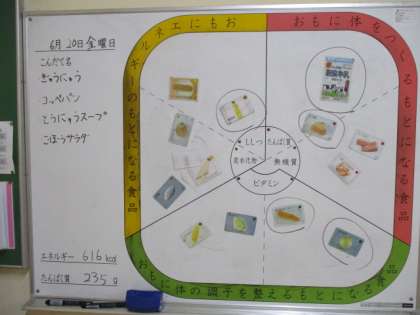 6月20日金曜日
こんだてる
ぎゅうにゅう
コッペパン
とうにゅうスープ
ごぼうサラダ
エネルギー 616 kcal
たんぱく質 235 g
おもにエネルギーのもとになる食品
おもに体をつくるもとになる食品
おもに体の調子を整えるもとになる食品
ししつ
たんぱく質
炭水化物
無機質
ビタミン